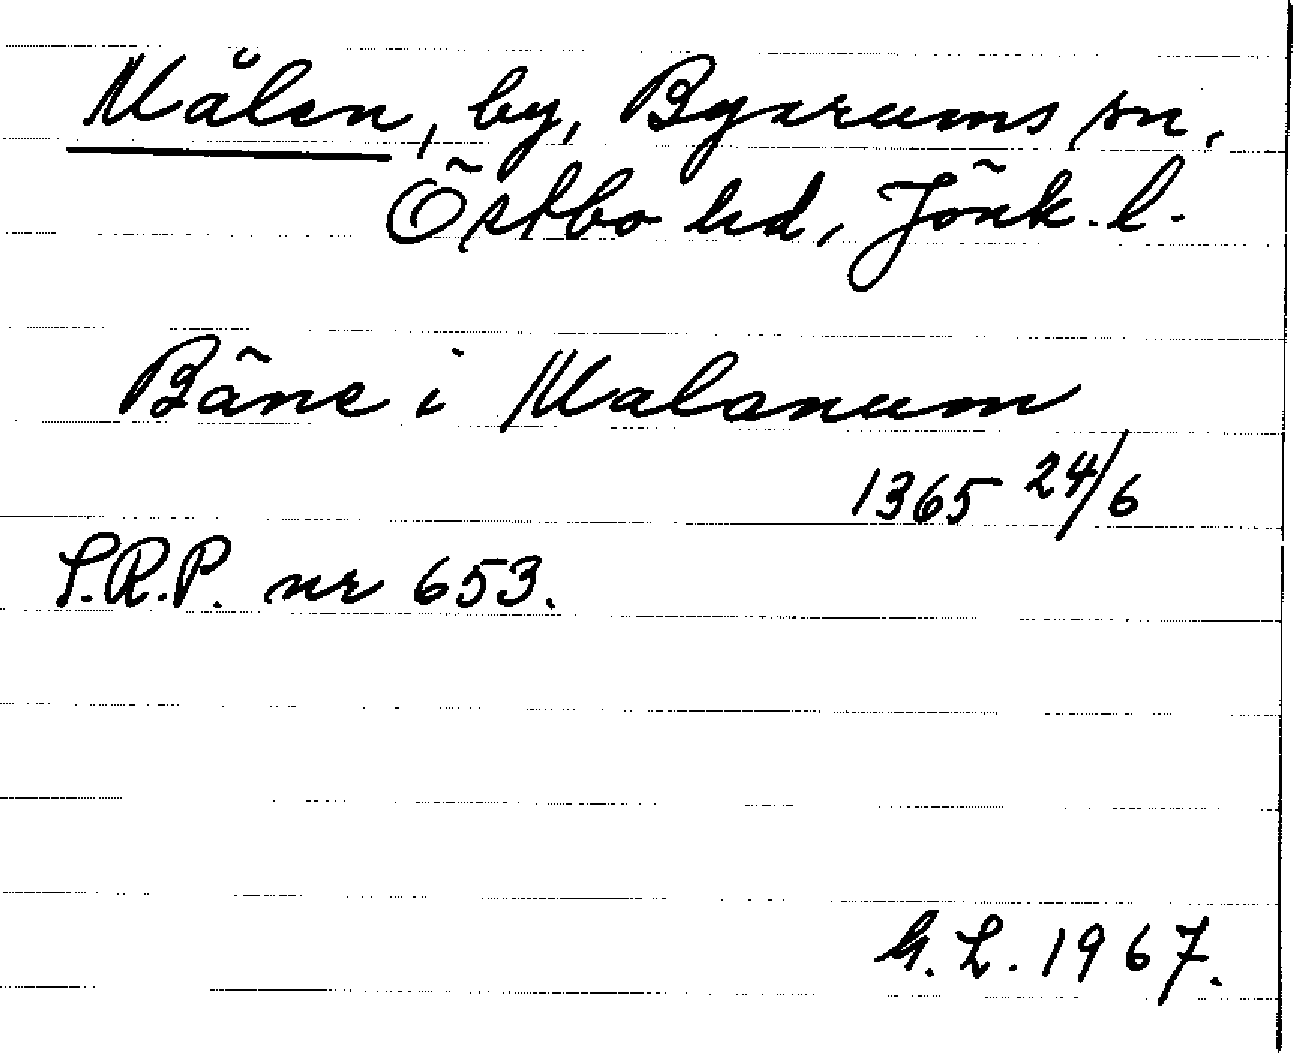 Målen, by, Byarums sn,
Östbo hd, Jönk. l.
Bäne i Malanum
1365 24/6
S.R.P. nr 653.
G. L. 1967.